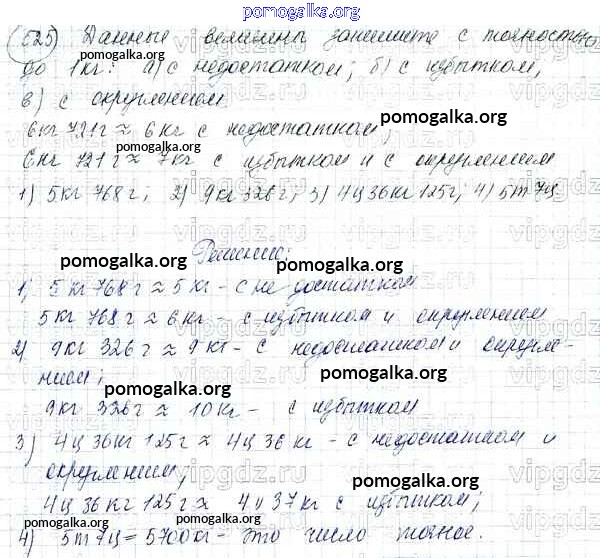 pomogalka.org
525) Данные величины запишите с точностью
до 1кг: а) с недостатком; б) с избытком;
в) с округлением
pomogalka.org
6кг 721г ≈ 6 кг с недостатком;
6кг 721г ≈ 7кг с избытком и с округлением
pomogalka.org
1) 5кг 768г; 2) 9кг 326г; 3) 4ц 36кг 125г; 4) 5т 7ц
Решение:
pomogalka.org pomogalka.org
1) 5 кг 768 г ≈ 5 кг - с недостатком
5 кг 768г ≈ 6кг - с избытком и округлением
pomogalka.org
2) 9кг 326г ≈ 9 кг - с недостатком и округле-
нием;
pomogalka.org
9кг 326г ≈ 10 кг - с избытком
pomogalka.org
3) 4ц 36кг 125г ≈ 4ц 36 кг - с недостатком и
округлением;
pomogalka.org
4ц 36 кг 125г ≈ 4ц 37кг с избытком;
pomogalka.org pomogalka.org
4) 5т 7ц = 5700кг - это число точное.